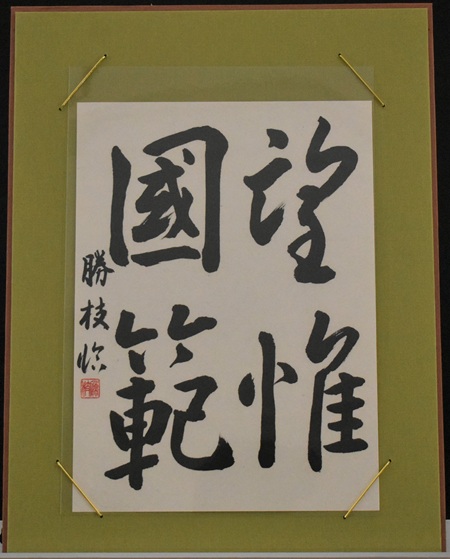 望惟
國範
勝枝臨